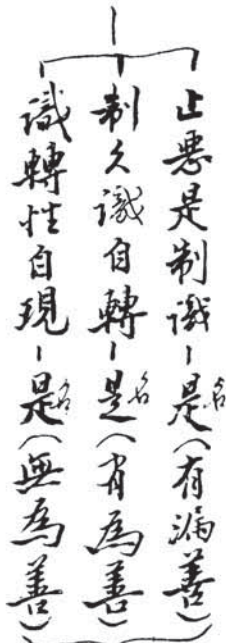 止惡是制識－是名（有漏善）
制久識自轉－是名（有為善）
識轉性自現－是名（無為善）